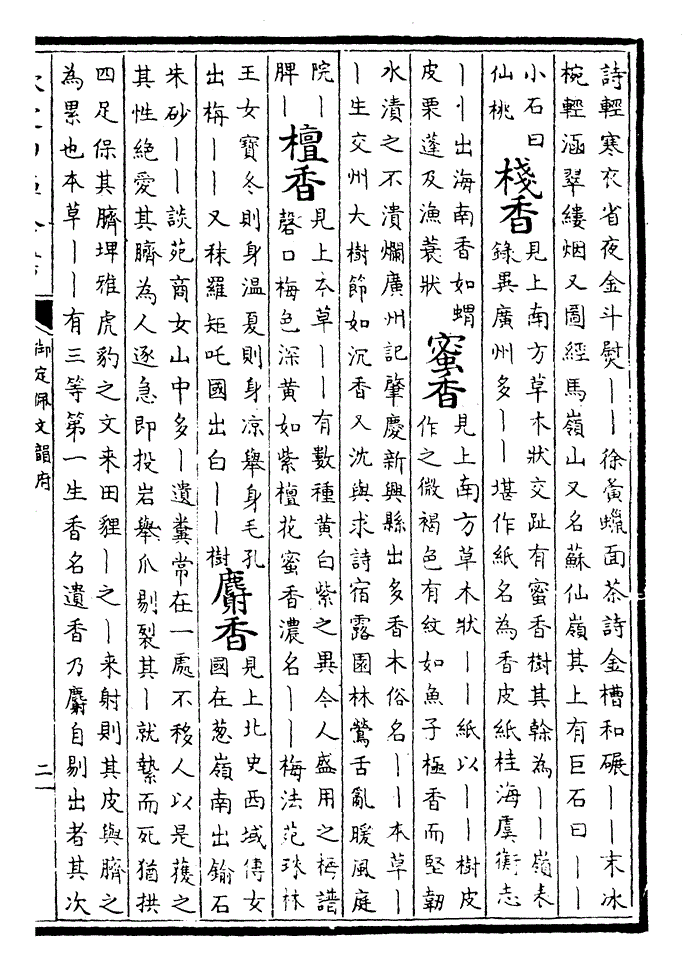 詩輕寒衣省夜金斗熨——徐夤蠟面茶詩金槽和碾——末冰
椀輕涵翠縷烟又圖經馬嶺山又名蘇仙嶺其上有巨石曰——
小石曰
仙桃
棧香
見上南方草木狀交趾有蜜香樹其榦為——嶺表
錄異廣州多——堪作紙名為香皮紙桂海虞衡志
——出海南香如蝟
皮栗蓬及漁蓑狀
蜜香
見上南方草木狀——紙以——樹皮
作之微褐色有紋如魚子極香而堅韌
水漬之不潰爛廣州記肇慶新興縣出多香木俗名——本草—
—生交州大樹節如沉香又沈與求詩宿露園林鶯舌亂暖風庭
院—
脾—
檀香
見上本草——有數種黃白紫之異今人盛用之梅譜
磬口梅色深黃如紫檀花蜜香濃名——梅法范珠林
王女寶冬則身溫夏則身凉舉身毛孔
出栴——又秣羅矩吒國出白——樹
麝香
見上北史西域傳女
國在葱嶺南出鍮石
朱砂——談苑商女山中多—遺糞常在一處不移人以是獲之
其性絶愛其臍為人逐急即投岩舉爪剔裂其—就縶而死猶拱
四足保其臍埤雅虎豹之文来田貍—之—来射則其皮與臍之
為累也本草——有三等第一生香名遺香乃麝自剔出者其次
御定佩文韻府